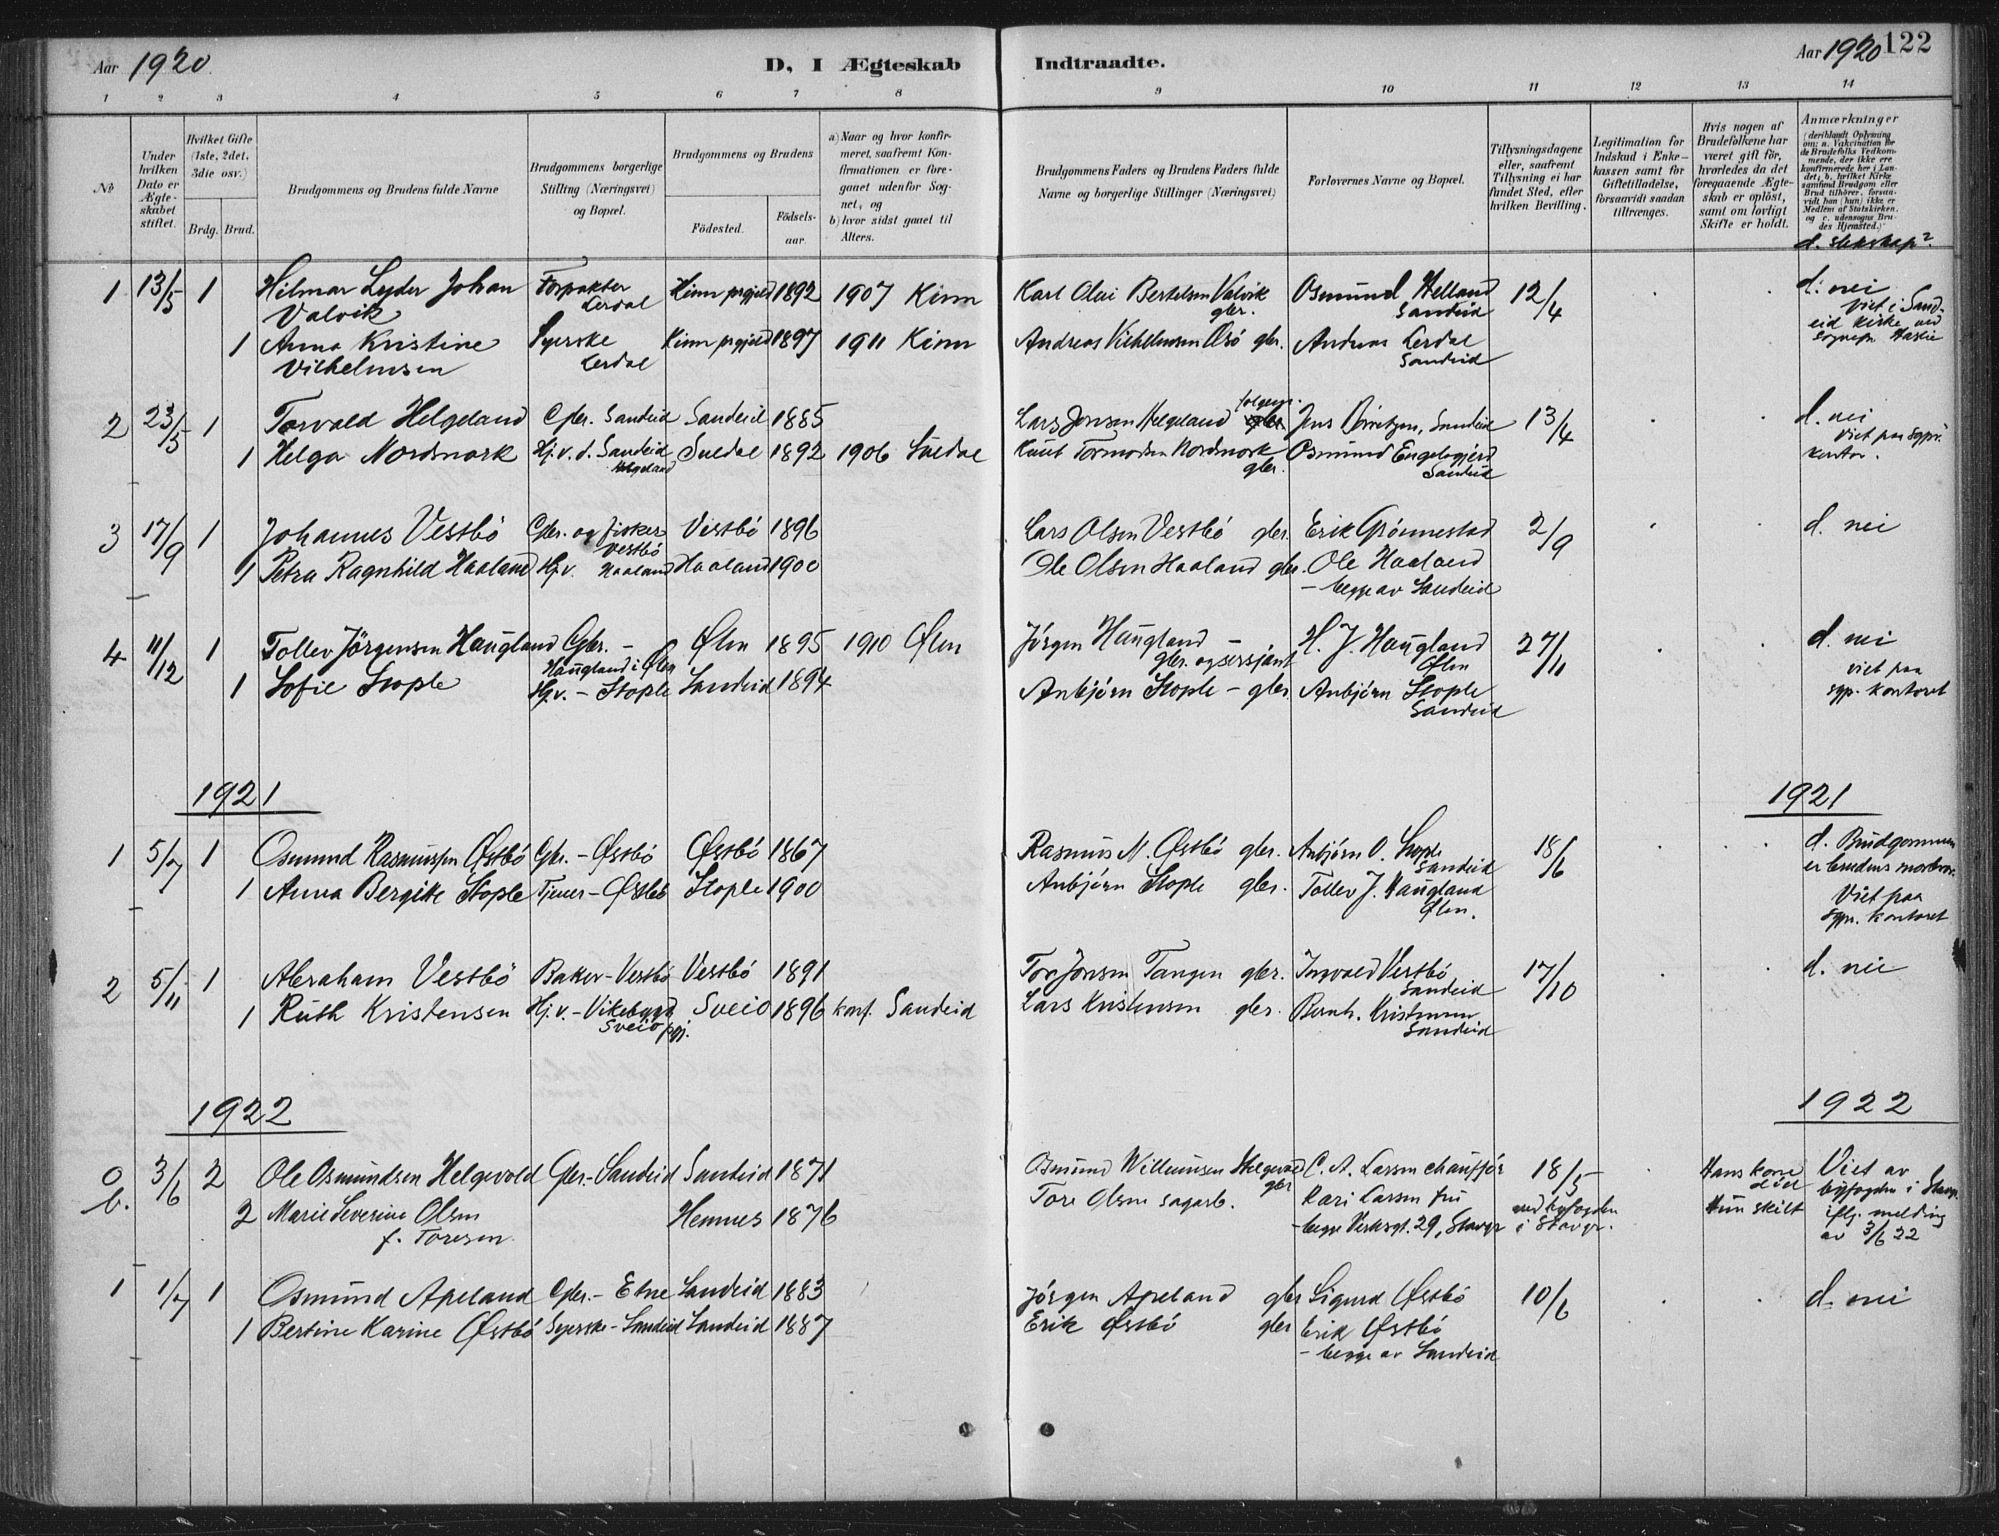 Aar 1920. D, I Ægteskab Indtraadte. Aar 1920 122
1 2 3 4 5 6 7 8 9 10 11 12 13 14
No
Under hvilken Dato er Ægteskabet stiftet.
Hvilket Gifte (1ste, 2det, 3die osv.)
Brdg. Brud.
Brudgommens og Brudens fulde Navne
Brudgommens borgerlige Stilling (Næringsvei) og Bopæl.
Brudgommens og Brudens
Födested. Födselsaar.
a) Naar og hvor konfirmeret, saafremt Konfirmationen er foregaaet udenfor Sognet, og
b) hvor sidst gaaet til Alters.
Brudgommens Faders og Brudens Faders fulde Navne og borgerlige Stillinger (Næringsvei)
Forlovernes Navne og Bopæl.
Tillysningsdagene eller, saafremt Tillysning ei har fundet Sted, efter hvilken Bevilling.
Legitimation for Indskud i Enkekassen samt for Giftetilladelse, forsaavidt saadan tiltrænges.
Hvis nogen af Brudefolkene har været gift för, hvorledes da det foregaaende Ægteskab er oplöst, samt om lovligt Skifte er holdt.
Anmærkninger
(deriblandt Oplysning om: a. Vakcination for de Brudefolks Vedkommende, der ikke ere konfirmerede her i Landet; b. hvilket Kirkesamfund Brudgom eller Brud tilhörer, forsaavidt han (hun) ikke er Medlem af Statskirken, og c. udensogns Brudes Hjemsted.)
d. slekskap?
1 13/5 1 Hilmar Leyder Johan Forpakter Kinn prgjeld 1892 1907 Kinn Karl Olai Bertelsen Valvik Osmund Helland 12/4 d. nei
Valvik Lerdal gbr. Sandeid viet i Sandeid kirke ved sognepr.
1 Anna Kristine Syerske Kinn prgjeld 1897 1911 Kinn Andreas Vilhelmsen gbr. Andreas Lerdal
Vilhelmsen Lerdal Sandeid
2 23/5 1 Torvald Helgeland Gbr. Sandeid Sandeid 1885 Lars Jonsen Helgeland gbr Jens Sandeid 13/4 d. nei
1 Helga Nordmork Hj.v. d. Sandeid Suldal 1892 1906 Suldal Knut Tormodsen Nordmork Osmund Engelsgjerd viet paa sgpr.
Helgeland gbr. Sandeid kontor.
3 17/9 1 Johannes Vestbö Gbr. og fisker Vestbö 1896 Lars Olsen Vestbö gbr. Erik Grönnestad 2/9 d. nei
Vestbö
1 Petra Ragnhild Haaland Hj.v. Haaland Haaland 1900 Ole Olsen Haaland gbr. Ole Haaland
– begge av Sandeid
4 11/12 1 Tollev Jörgensen Haugland Gbr. – Ølen 1895 1910 Ølen Jörgen Haugland H. J. Haugland 27/11 d. nei
Haugland i Ølen gbr. og sersjant Ølen viet paa
1 Sofie Stople Hj.v. – Stople Sandeid 1894 Anbjörn Stople – gbr. Anbjörn Stople sgpr. kontoret
Sandeid
1921 1921
1 5/7 1 Osmund Rasmussen Østbö Gbr. – Østbö Østbö 1867 Rasmus M. Østbö gbr. Anbjörn O. Stople 18/6 d. Brudgommen
Sandeid er brudens morbror.
1 Anna Bergitte Stople Tjener – Østbö Stople 1900 Anbjörn Stople gbr. Tollev J. Haugland Viet paa
Ølen. sgpr. kontoret
2 5/11 1 Abraham Vestbö Baker – Vestbö Vestbö 1891 Tor Jonsen Tangen gbr. Ingvald Vestbö 17/10 d. nei
Sandeid
1 Ruth Kristensen Hj.v. – Vikebygd Sveio 1896 konf. Sandeid Lars Kristensen gbr. Bernh. Kristensen
Sveio pgj. Sandeid
1922 1922
0 3/6 2 Ole Osmundsen Helgevold Gbr. – Sandeid Sandeid 1871 Osmund Willumsen Helgevold C. A. Larsen chauffør 18/5 Hans kone död Viet av
b. gbr byfogden i Stavgr.
2 Marie Severine Olsen Hemnes 1876 Tore Olsen sagarb. Kari Larsen fru ved byfogden Hun skilt iflg. melding
f. Toresen. – begge Verksgt. 29, Stavgr i Stavgr. av 3/6 22
1 1/7 1 Osmund Apeland Gbr. – Etne Sandeid 1883 Jörgen Apeland gbr Sigurd Østbö 10/6 d. nei
1 Bertine Karine Østbö Syerske – Sandeid Sandeid 1887 Erik Østbö gbr Erik Østbö
– begge av Sandeid